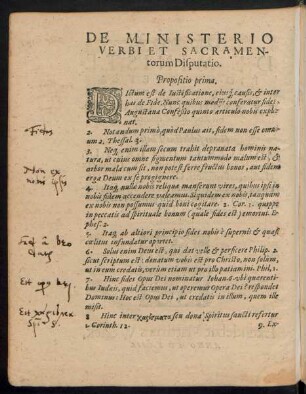 DE MINISTERIO
VERBI ET SACRAMEN-
torum Disputatio.
Propositio prima.
DIctum est de Iustificatione, eiusq́; causis, & inter
has de Fide. Nunc quibus medijs conferatur fides,
Augustana Confessio quinto articulo nobis expli-
cat.
2. Notandum primò, quòd Paulus ait, fidem non esse omni-
um 2. Thessal. 3.
3. Neq́; enim illam secum trahit depravata hominis natu-
ra, ut cuius omne figmentum tantummodò malum est, &
arbor mala cum sit, non potest ferre fructus bonos, aut fidem
erga Deum ex se progignere.
4. Itaq́; nulla nobis relique manserunt vires, quibus ipsi in
nobis fidem accendere valeamus. Siquidem ex nobis, tanquam
ex nobis non possumus quid boni cogitare. 2. Cor. 3. quippe
in peccatis ad spiritualem bonum (quale fides est) mortui. E-
phes. 2.
5. Itaq́; ab altiori principio fides nobis è supernis & quasi
coelitus infundatur oportet.
6. Solus enim Deus est, qui dat velle & perficere Philip. 2.
sicut scriptum est: donatum vobis est pro Christo, non solùm,
ut in eum credatis, verùm etiam ut pro illo patiamini. Phil. 1.
7. Hinc fides Opus Dei nominatur Iohan. 6. ubi quærenti-
bus Iudæis, quid faciemus, ut operemur Opera Dei? respondet
Dominus: Hoc est Opus Dei, ut credatis in illum, quem ille
misit.
8 Hinc inter χαρίσματα seu dona Spiritus sancti refertur
1. Corinth. 12.
9. Ex-
Fides
Non ex
Est